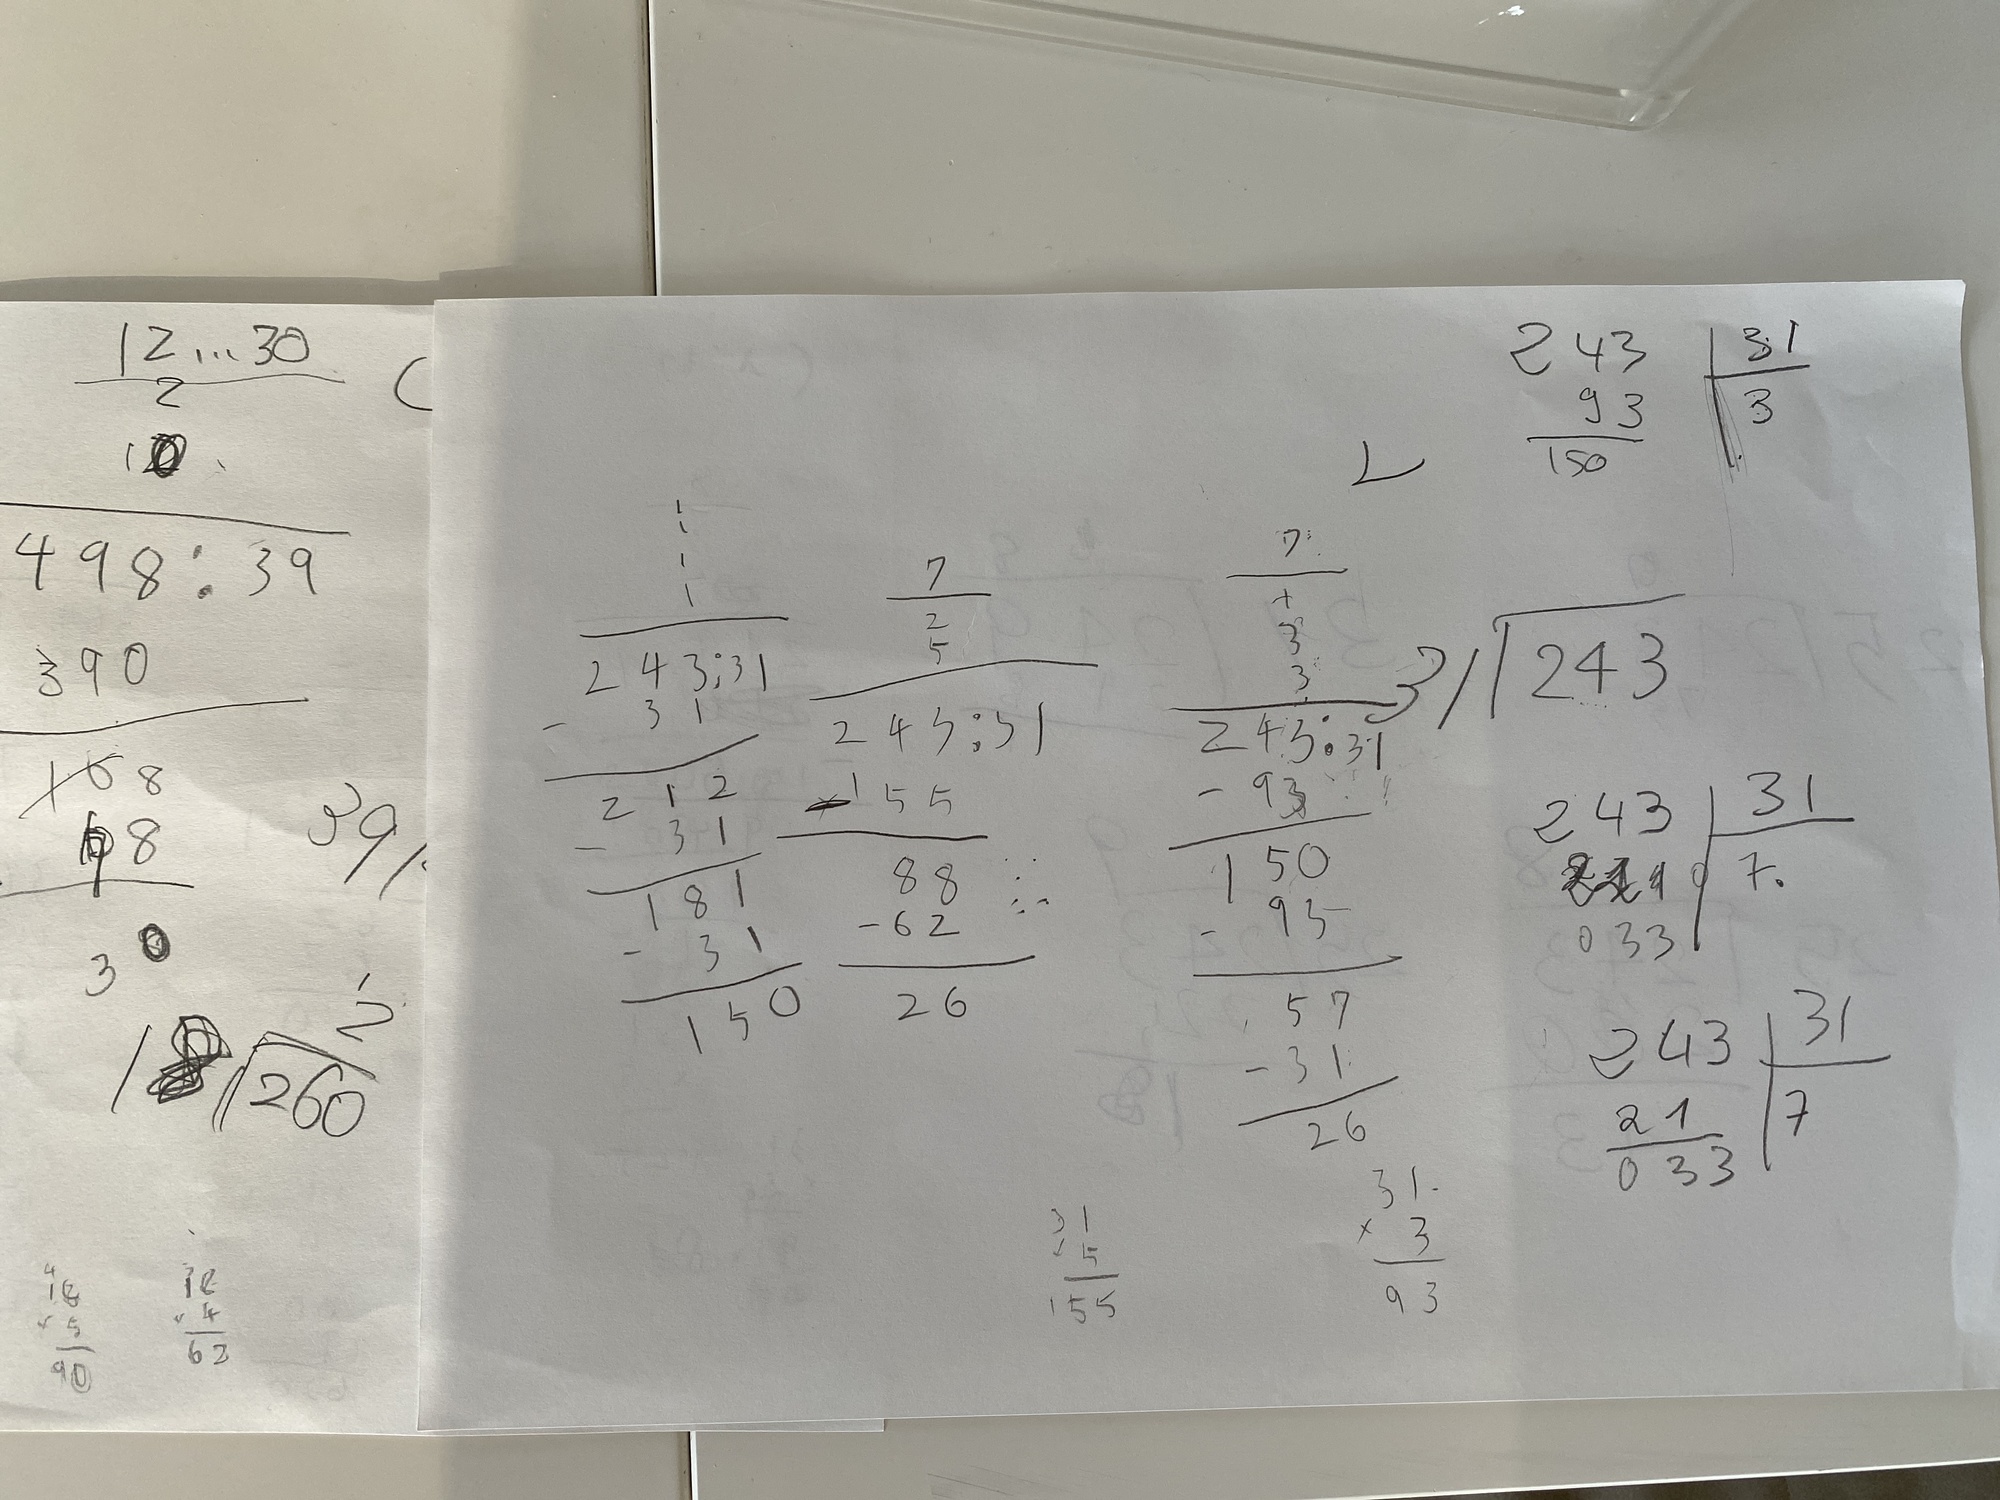 12...30
2
10
498:39
390
108
98
30
39/
2
18/260
18
× 5
90
18
× 4
62
1
1
1
1
243:31
- 31
212
- 31
181
- 31
150
7
2
5
243:31
155
88
-62
26
31
× 5
155
7
1
3
3
243:31
- 93
150
- 93
57
- 31
26
31
× 3
93
243 31
93 3
150
31/243
243 31
7.
033
243 31
21 7
033